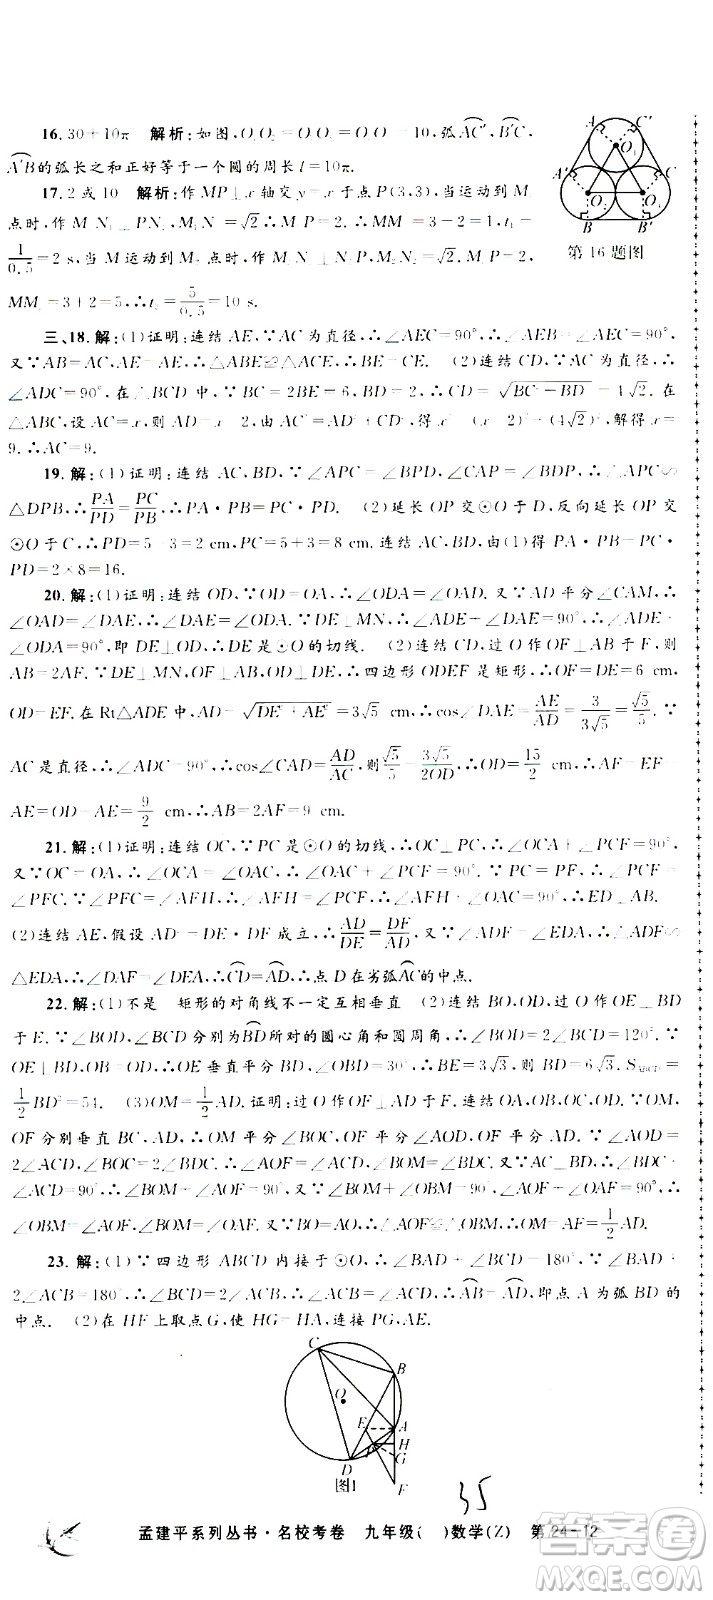 16. 30+10π 解析:如图,O₁O₂=O₂O₃=O₁O₃=10,弧AC′,B′C,
A′B的弧长之和正好等于一个圆的周长l=10π.
17. 2或10 解析:作MP⊥x轴交y=x于点P(3,3),当运动到M
点时,作M N ⊥PN,M N =√2∴M P=2.∴MM =3-2=1,t
1/0.5=2 s,当M运动到M 点时,作M N =√2∴M P=2,
MM =3+2=5,∴t =5/0.5=10 s.
第16题图
三、18.解:(1)证明:连结AE,∵AC为直径,∴∠AEC=90°,∴∠AEB=90°.
又∵AB=AC,AE=AE,∴△ABE≌△ACE,∴BE=CE. (2)连结CD,∵AC为直径,
∴∠ADC=90°,在△BCD中,∵BC=2BE=6,BD=2,∴CD=√(BC²-BD²)=4√2.在
△ABC,设AC=x,则AD=x-2,由AC²=AD²+CD²,得x²=(x-2)²+(4√2)²,解得x=
9.∴AC=9.
19.解:(1)证明:连结AC,BD,∵∠APC=∠BPD,∠CAB=∠CDB,∴△APC∽
△DPB,∴PA/PD=PC/PB,∴PA·PB=PC·PD. (2)延长OP交⊙O于D,反向延长OP交
⊙O于C,∴PD=5-3=2,PC=5+3=8.连结AC,BD,由(1)得PA·PB=PC·PD=
2×8=16.
20.解:(1)证明:连结OD,∵OD=OA,∴∠ODA=∠OAD.又∵AD平分∠CAM,∴
∠OAD=∠DAE,∴∠ODA=∠DAE.∵DE⊥MN,∴∠DAE+∠ADE=90°,∴∠ODA+
∠ADE=90°,即DE⊥OD,∴DE是⊙O的切线. (2)过O作OF⊥AB,垂足为F,则
AB=2AF.∵DE⊥MN,OF⊥MN,DE⊥OD,∴四边形ODEF是矩形,∴OF=DE=6 cm,
OD=EF.在Rt△ADE中,AD=√(DE²+AE²)=3√5 cm,∴cos∠DAE=AE/AD=3/3√5=√5/5.∵
AC是直径,∴∠ADC=90°,∴cos∠CAD=AD/AC,则√5/5=3√5/2OD,∴OD=15/2 cm,∴AF=EF-
AE=OD-AE=9/2 cm,∴AB=2AF=9 cm.
21.解:(1)证明:连结OC,∵PC是⊙O的切线,∴OC⊥PC,∴∠OCF+∠PCF=90°,
又∵OC=OA,∴∠OCA=∠OAC,∴∠OAC+∠PCF=90°.∵PC=PF,∴∠PCF=
∠PFC.∵∠PFC=∠AFH,∴∠AFH+∠OAC=90°,∴∠AHF=90°,即DE⊥AB.
(2)连结AE,假设AD²=DE·DF成立,∴AD/DE=DF/AD,又∵∠ADF=∠EDA,∴△ADF∽
△EDA,∴∠DAF=∠DEA,∴CD=AD,∴点D在劣弧AC的中点.
22.解:(1)不是 矩形的对角线不一定互相垂直 (2)连结BO,OD,过O作OE⊥BD
于E.∵∠BOD,∠BCD分别为BD所对的圆心角和圆周角,∴∠BOD=2∠BCD=120°.∵
OE⊥BD,∴OE垂直平分BD,∠OBD=30°,∴BE=3√3,∴BD=6√3.
1/2BD²=54. (3)OM=1/2AD.证明:过O作OF⊥AD于F.连结OA,OB,OC,OD.∵OM,
OF分别垂直BC,AD,∴OM平分∠BOC,OF平分∠AOD,OF平分AD.∵∠AOD=
2∠ACD,∠BOC=2∠BDC,∴∠AOF=∠ACD,∠BOM=∠BDC.又∵AC⊥BD,∴∠BDC+
∠ACD=90°,∴∠BOM+∠AOF=90°,又∵∠BOM+∠OBM=90°,∴∠AOF=
∠OBM.∵∠OFA=∠BMO=90°,又∵BO=AO,∴△AOF≌△OBM,∴OM=AF=1/2AD.
23.解:(1)∵四边形ABCD内接于⊙O,∴∠BCD=180°-∠BAD.∵∠BAD=180°-
2∠ACB,∴∠BCD=2∠ACB,∴∠ACB=∠ACD,∴AB=AD,即点A为弧BD的
中点. (2)在HF上取点G,使HG=HA,连接PG,AE.
C
B
O
E
A
P
H
G
D
F
[图]
35
孟建平系列丛书·名校考卷 九年级( )数学(Z) 第24-12
作业精灵